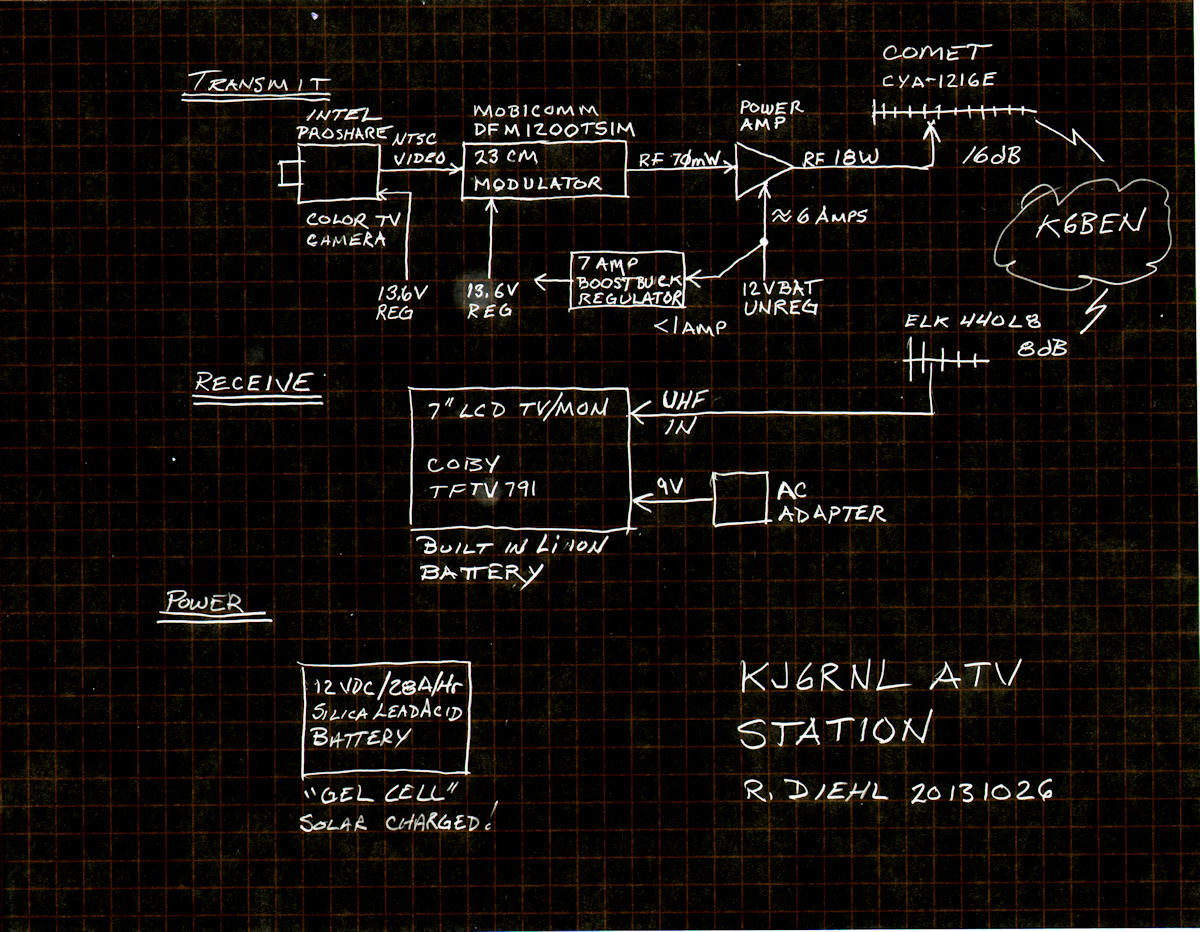 TRANSMIT
INTEL
PROSHARE
NTSC
VIDEO
COLOR TV
CAMERA
13.6V
REG
MOBICOMM
DFM1200TSIM
23 CM
MODULATOR
13.6V
REG
RF 70mW
POWER
AMP
RF 18W
≈ 6 AMPS
7 AMP
BOOST BUCK
REGULATOR
<1 AMP
12V BAT
UNREG
COMET
CYA-1216E
16dB
K6BEN
ELK 440L8
8dB
RECEIVE
7" LCD TV/MON
COBY
TFTV791
BUILT IN Li ION
BATTERY
UHF
IN
9V
AC
ADAPTER
POWER
12VDC/28A/Hr
SILICA LEAD ACID
BATTERY
"GEL CELL"
SOLAR CHARGED!
KJ6RNL ATV
STATION
R. DIEHL 20131026